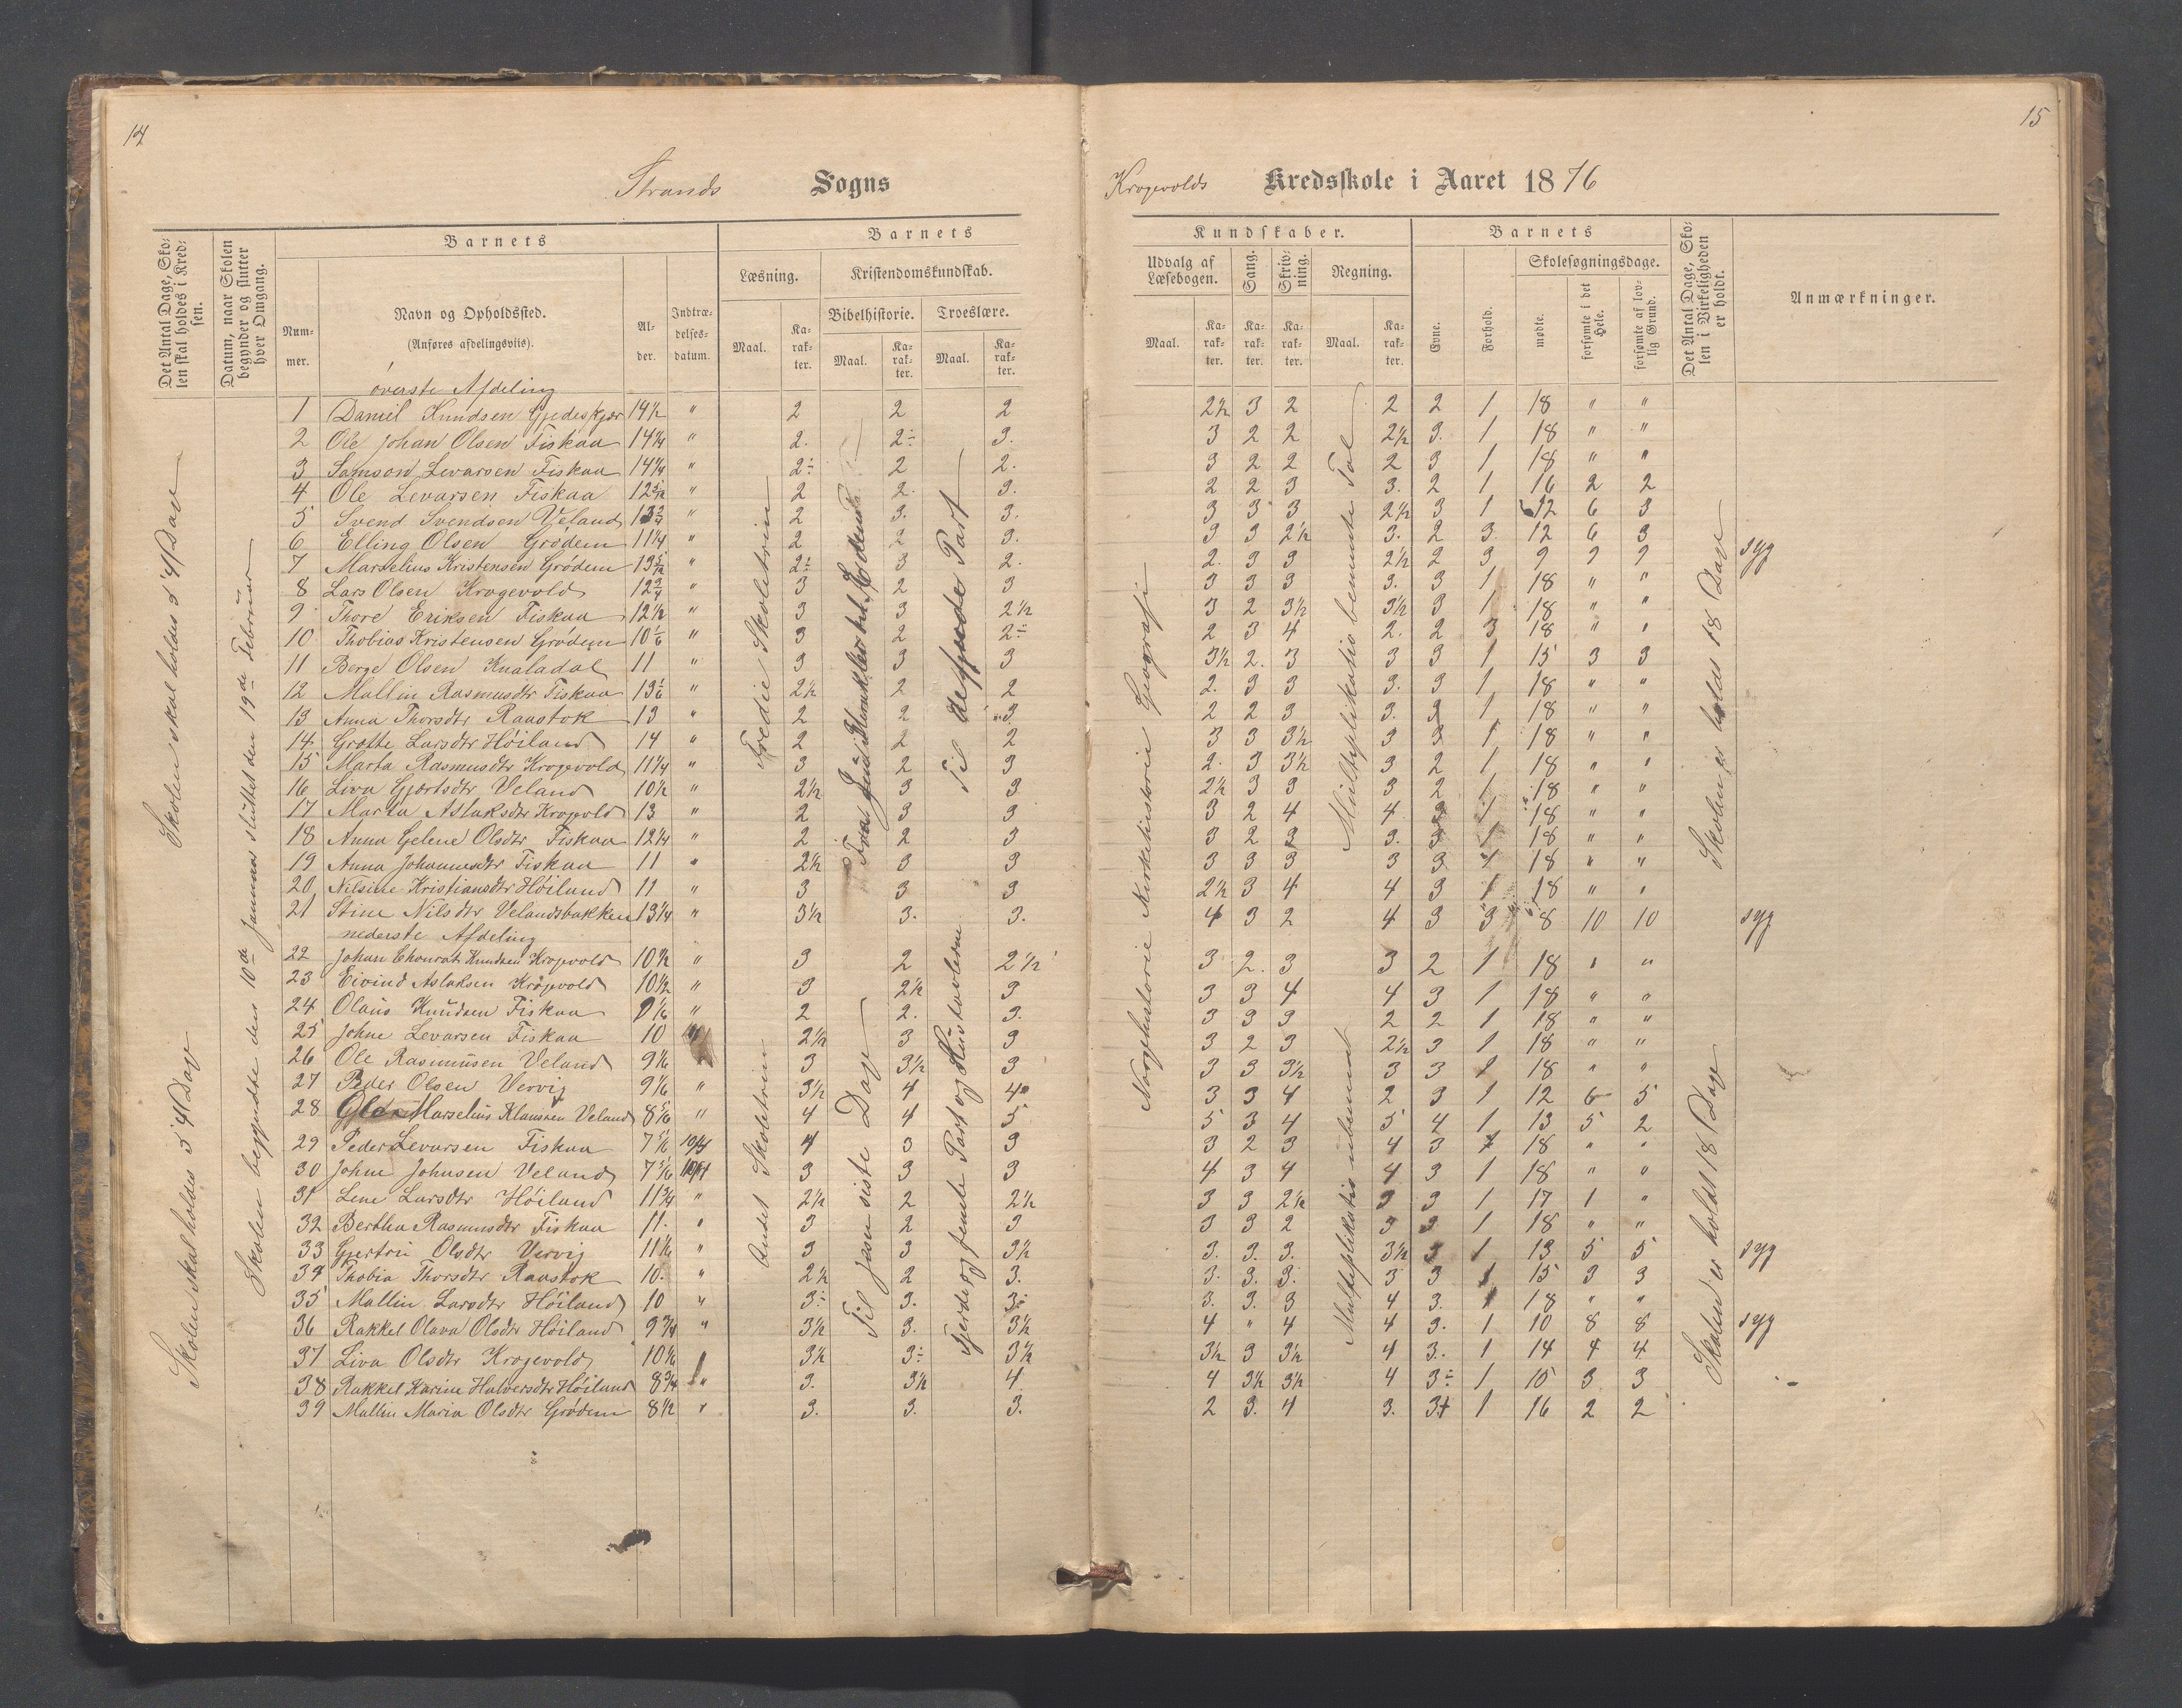 14
15
Strands Sogns
Krogevolds Kredsskole i Aaret 1876
Det Antal Dage, Skolen skal holdes i Kredsen.
Datum, naar Skolen begynder og slutter hver Omgang.
Barnets
Nummer.
Navn og Opholdssted.
(Anføres afdelingsviis).
Alder.
Indtrædelsesdatum.
Barnets
Læsning.
Kristendomskundskab.
Bibelhistorie. Troeslære.
Maal. Karakter. Maal. Karakter. Maal. Karakter.
Kundskaber.
Udvalg af Læsebogen. Sang. Skrivning. Regning.
Maal. Karakter. Karakter. Karakter. Maal. Karakter.
Barnets
Evne. Forhold.
Skolesøgningsdage.
mødte. forsømte i det Hele. forsømte af lovlig Grund.
Det Antal Dage, Skolen i Virkeligheden er holdt.
Anmærkninger.
øverste Afdeling
1 Daniel Knudsen Gjedeskjær 14½ " 2 2 2 2½ 3 2 2 2 1 18 " "
2 Ole Johan Olsen Fiskaa 14¼ " 2. 2÷ 3. 3 2 2 2½ 3. 1 18 " "
3 Samson Levarsen Fiskaa 14¼ " 2÷ 2 2. 3 2 2 2 3 1 18 " "
4 Ole Levarsen Fiskaa 12 5/12 " 2 2. 3. 2 2 3 3. 2 1 16 2 2
5 Svend Svendsen Veland 13¾ " 2 3. 3. 3 3 3 2½ 3 1 12 6 3
6 Elling Olsen Grödem 11¼ " 2 2 3. 3 3 2½ 3. 2 3 12 6 3
7 Marselius Kristensen Grödem 13 5/12 " 2÷ 3 2. 2. 3 3 2½ 2 3 9 9 9 syg
8 Lars Olsen Krogevold 12¾ " 3 2 3 3 3 3 3. 3 1 18 " "
9 Thore Eriksen Fiskaa 12½ " 3 3 2½ 3 2 3½ 3½ 3 1 18 " "
10 Thobias Kristensen Grödem 10 1/6 " 3 2 2÷ 2 3 4 2. 2 3 18 " "
11 Berge Olsen Knaladal 11 " 3 3 3 3½ 2. 3 3 3 1 15 3 3
12 Mallin Rasmusdtr Fiskaa 13 1/6 " 2½ 2 2 2. 3 3 3. 3 1 18 " "
13 Anna Thorsdtr Raustok 13 " 2 2 3. 2 2 3 3. 3 1 18 " "
14 Grethe Larsdtr Höiland 14 " 2 2 2 3 3 3½ 3 3 1 18 " "
15 Marta Rasmusdtr Krogevold 11¼ " 3 2 3 2. 3 3½ 3 2 1 18 " "
16 Liva Gjertsdtr Veland 10½ " 2½ 3 3 2½ 3 3 3 2 1 18 " "
17 Marta Aslaksdtr Krogevold 13 " 2 3 3 3 2 4 4 3 1 18 " "
18 Anna Gelene Olsdtr Fiskaa 12¼ " 2 2 3 3 2 3 3. 3 1 18 " "
19 Anna Johannesdtr Fiskaa 11 " 2½ 3 3 3 3 3 3 3 1 18 " "
20 Nilsine Kristiansdtr Höiland 11 " 3 3 3 2½ 3 4 4 3 1 18 " "
21 Stine Nilsdtr Velandsbakken 13¼ " 3½ 3. 3. 4 3 2 4 3 3 8 10 10 syg
nederste Afdeling
22 Johan Chonrat Knudsen Krogevold 10½ " 3 2 2½ 3 2. 3 3 2 1 18 " "
23 Eivind Aslaksen Krogevold 10½ " 3 2½ 3 3 3 4 4 3 1 18 " "
24 Olaus Knudsen Fiskaa 9 1/6 " 2 2. 3. 3 3 3 2 2 1 18 " "
25 Johne Levarsen Fiskaa 10 2½ 3 3 3 2 3 2½ 3 1 18 " "
26 Ole Rasmussen Veland 9 1/6 3 3½ 3 3 3 3½ 3 3 1 18 " "
27 Peder Olsen Vervig 9 1/6 " 3½ 4 4 3 3 4 2 3 1 12 6 5
28 Marselius Klausen Veland 8 5/6 " 4 4 5 5 3 4 5 4 1 13 5 2
29 Peder Levarsen Fiskaa 7 5/6 4 3 3 3 2 3 4 3 1 18 " "
30 Johne Johnsen Veland 7 5/6 3 3 3 4 3 4 4 3 1 18 " "
31 Lene Larsdtr Höiland 11¾ " 2½ 2 2½ 3 3 2½ 3 3 1 17 1 "
32 Bertha Rasmusdtr Fiskaa 11. " 3 2 3 3 3 2 3 3 1 18 " "
33 Gjertrü Olsdtr Vervig 11 1/6 " 3 3 3½ 3. 3. 3. 3½ 3 1 13 5 5 syg
34 Thobia Thorsdtr Raustok 10. " 2½ 2 3. 3. 3. 3. 3 3 1 15 3 3
35 Mallin Larsdtr Höiland 10 " 3÷ 3. 3÷ 3. 3. 3 4 3. 1 18 " "
36 Rakkel Olava Olsdtr Höiland 9¾ " 3½ 3. 3½ 4 " 4 4 3. 1 10 8 8 syg
37 Liva Olsdtr Krogevold 10 1/6 3½ 3÷ 3½ 3½ 3 3½ 4 3. 1 14 4 4
38 Rakkel Karine Halversdtr Höiland 8¾ " 3. 3½ 4. 4 3½ 3½ 4 3÷ 1 15 3 3
39 Mallin Maria Olsdtr Grödem 8½ " 3. 3. 3. 2 3. 4 3. 3+ 1 16 2 2
Skolen skal holdes 3 4/7 Dage
Skolen skal holdes 3 4/7 Dage
Skolen begyndte den 10de Januar sluttet den 19de Februar
Tredie Skoletrin
Andet Skoletrin
Til den siste Dag
Til det fjerde Part
fjerde og femte Part og Hustavlerne
Norgehistorie Kirkehistorie Geografi
Multiplikatio benævnte Tal
Multiplikatio ubenævnt
Skolen er holdt 18 Dage
Skolen er holdt 18 Dage